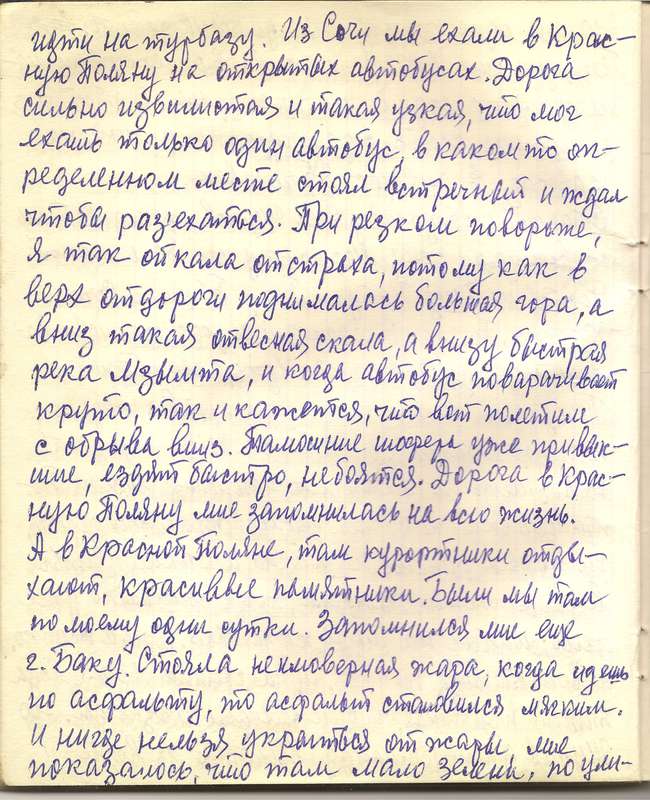 идти на турбазу. Из Сочи мы ехали в Крас-
ную Поляну на открытых автобусах. Дорога
сильно извилистая и такая узкая, что мог
ехать только один автобус, в каком то оп-
ределенном месте стоял встречный и ждал
чтобы раз'ехаться. При резком повороте,
я так ойкала от страха, потому как в
верх от дороги поднималась большая гора, а
вниз такая отвесная скала, а внизу быстрая
река Мзымта, и когда автобус поварачивает
круто, так и кажется, что вот полетим
с обрыва вниз. Тамошние шофера уже привык-
шие, ездят быстро, не боятся. Дорога в Крас-
ную Поляну мне запомнилась на всю жизнь.
А в Красной Поляне, там курортники отды-
хают, красивые памятники. Были мы там
по моему одни сутки. Запомнился мне еще
г. Баку. Стояла неимоверная жара, когда идешь
по асфальту, то асфальт становился мягким.
И нигде нельзя укрыться от жары, мне
показалось, что там мало зелени, по ули-